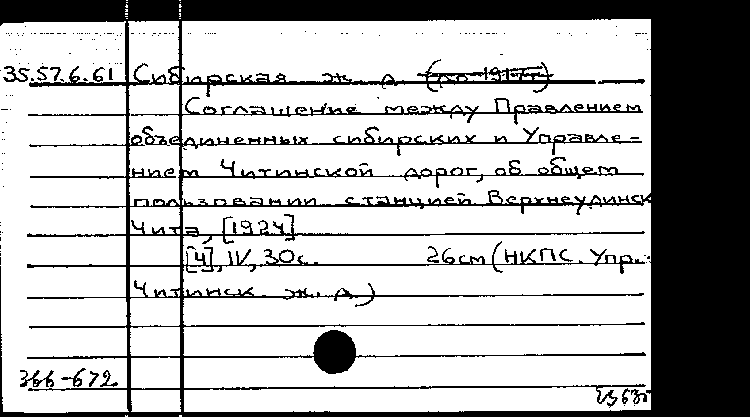 35.57.6.61 Сибирская ж. д. (до 1917г)
Соглашение между Правлением
объединенных сибирских и Управле=
нием Читинской дорог, об общем
пользовании станцией Верхнеудинск
Чита, [1924]
[4], IV, 30с. 26см (НКПС. Упр.
Читинск. ж. д.)
366-672